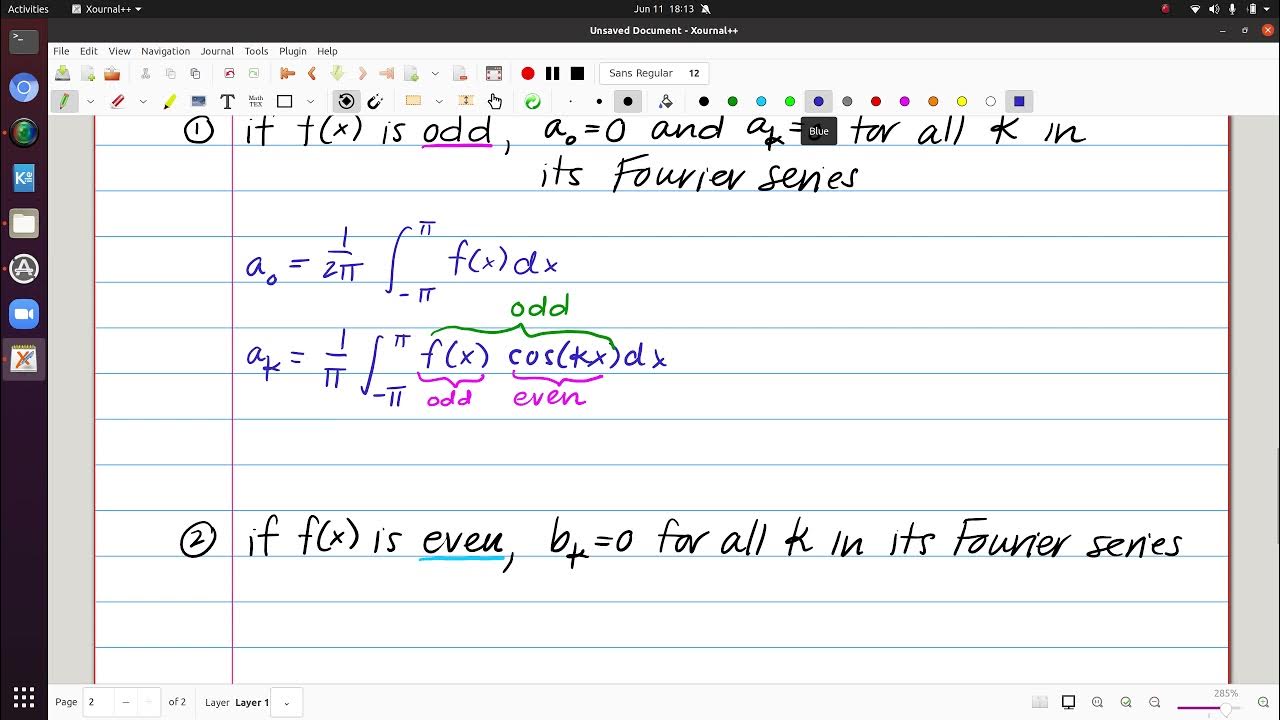 Activities Xournal++ Jun 11 18:13
Unsaved Document - Xournal++
File Edit View Navigation Journal Tools Plugin Help
Sans Regular 12
① if f(x) is odd, a₀=0 and aₖ= for all k in
Blue
its Fourier series
a₀ = 1/2π ∫_{-π}^{π} f(x) dx
odd
aₖ = 1/π ∫_{-π}^{π} f(x) cos(kx) dx
odd even
② if f(x) is even, bₖ=0 for all k in its Fourier series
Page 2 of 2 Layer Layer 1 285%